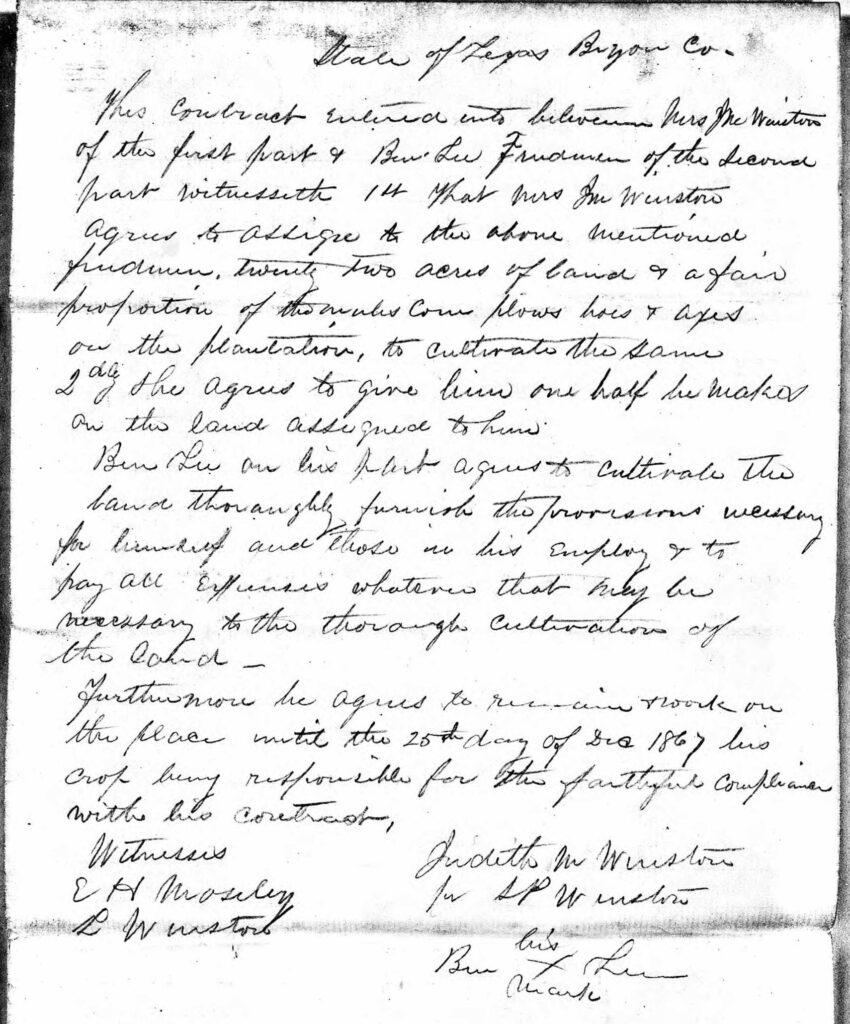 State of Texas Bryon Co.
This contract entered into between Mrs Jm Winston
of the first part & Ben Lee Frudmen of the second
part witnesseth 1st That Mrs Jm Winston
agrees to assigne to the above mentioned
frudmen, twenty two acres of land & a fair
proportion of the mules corn plows hoes & axes
on the plantation, to cultivate the same
2dly She agrees to give him one half he makes
on the land assigned to him
Ben Lee on his part agrees to cultivate the
land thoroughly furnish the provisions necessary
for himself and those in his employ & to
pay all expenses whatever that may be
necessary to the thorough cultivation of
the land —
Furthermore he agrees to remain & work on
the place until the 25th day of Dec 1867 his
crop being responsible for the faithful compliance
with his contract,
Witnesses
E H Moseley
L Winston
Judith M Winston
pr LP Winston
his
Ben X Lee
mark